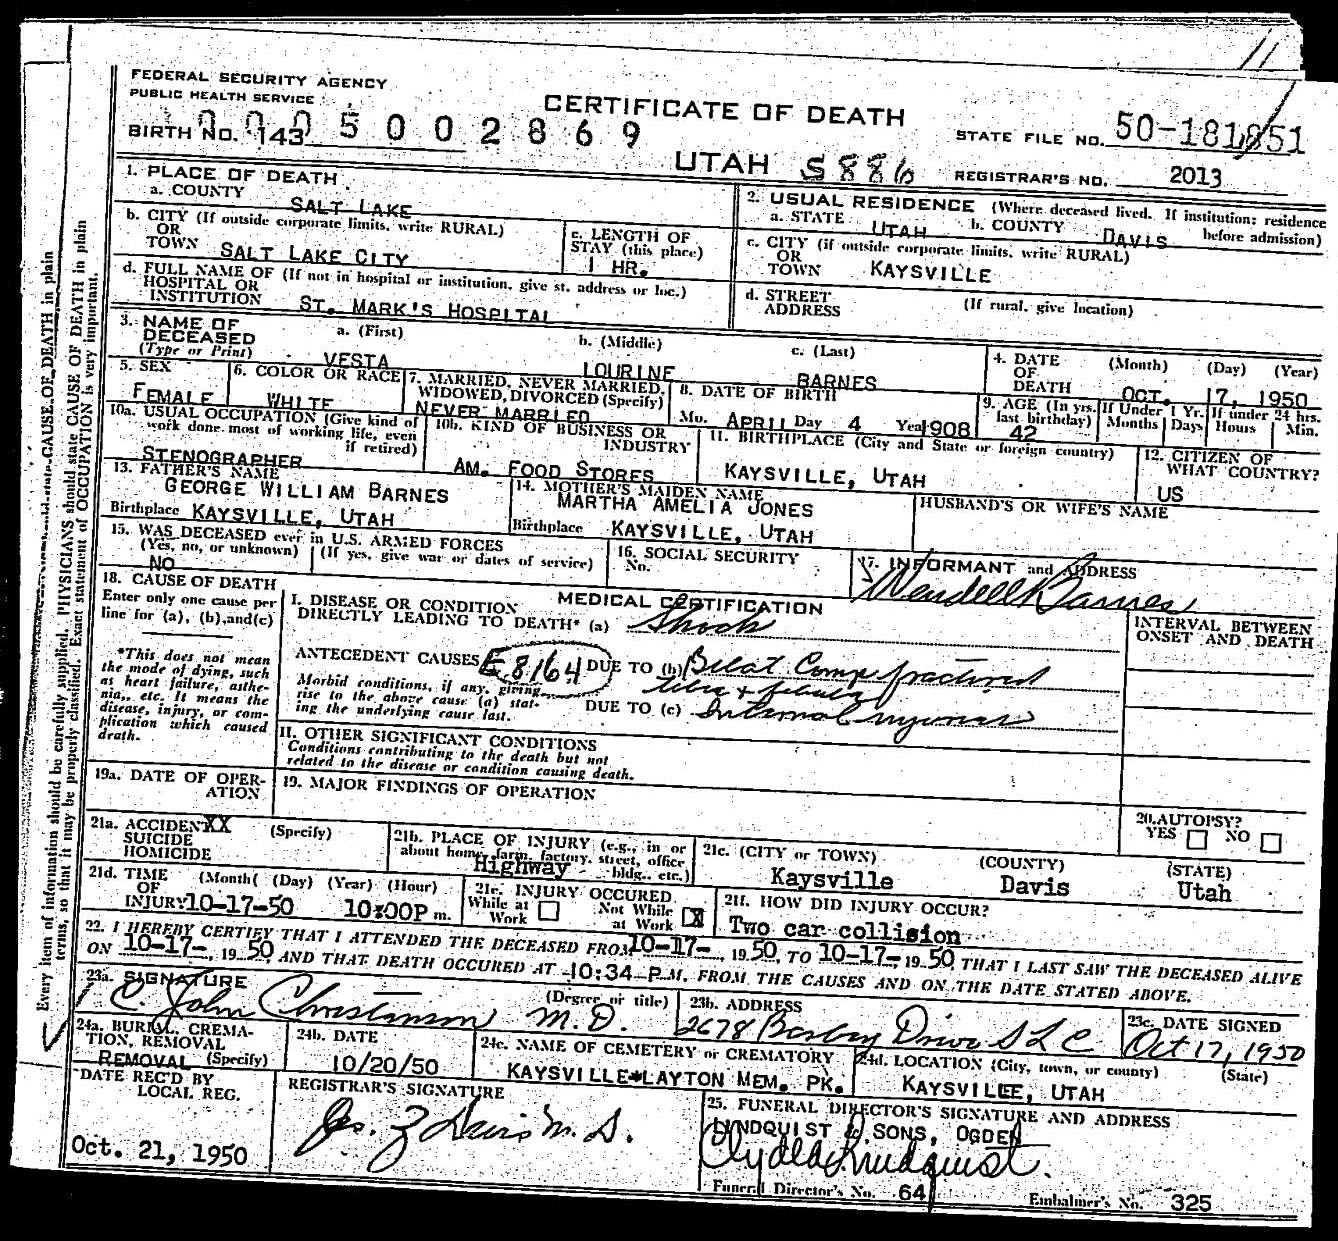 11
FEDERAL SECURITY AGENCY
PUBLIC HEALTH SERVICE
CERTIFICATE OF DEATH
BIRTH NO. 143 5002869
STATE FILE NO. 50-181851
UTAH S886
REGISTRAR'S NO. 2013
1. PLACE OF DEATH
a. COUNTY SALT LAKE
2. USUAL RESIDENCE (Where deceased lived. If institution: residence before admission)
a. STATE UTAH b. COUNTY DAVIS
b. CITY (If outside corporate limits, write RURAL)
OR
TOWN SALT LAKE CITY
c. LENGTH OF
STAY (this place)
1 HR.
c. CITY (if outside corporate limits, write RURAL)
OR
TOWN KAYSVILLE
d. FULL NAME OF (If not in hospital or institution, give st. address or loc.)
HOSPITAL OR
INSTITUTION ST. MARK'S HOSPITAL
d. STREET (If rural, give location)
ADDRESS
3. NAME OF
DECEASED
(Type or Print)
a. (First) b. (Middle) c. (Last)
VESTA LOURINE BARNES
4. DATE (Month) (Day) (Year)
OF
DEATH OCT. 17, 1950
5. SEX
FEMALE
6. COLOR OR RACE
WHITE
7. MARRIED, NEVER MARRIED,
WIDOWED, DIVORCED (Specify)
NEVER MARRIED
8. DATE OF BIRTH
Mo. APRIL Day 4 Year 1908
9. AGE (In yrs. last birthday)
42
If Under 1 Yr.
Months Days
If under 24 hrs.
Hours Min.
10a. USUAL OCCUPATION (Give kind of
work done most of working life, even
if retired)
STENOGRAPHER
10b. KIND OF BUSINESS OR
INDUSTRY
AM. FOOD STORES
11. BIRTHPLACE (City and State or foreign country)
KAYSVILLE, UTAH
12. CITIZEN OF
WHAT COUNTRY?
US
13. FATHER'S NAME
GEORGE WILLIAM BARNES
Birthplace KAYSVILLE, UTAH
14. MOTHER'S MAIDEN NAME
MARTHA AMELIA JONES
Birthplace KAYSVILLE, UTAH
HUSBAND'S OR WIFE'S NAME
15. WAS DECEASED ever in U.S. ARMED FORCES
(Yes, no, or unknown) (If yes, give war or dates of service)
NO
16. SOCIAL SECURITY
No.
17. INFORMANT and ADDRESS
Wendell Barnes
18. CAUSE OF DEATH
Enter only one cause per
line for (a), (b), and (c)
*This does not mean
the mode of dying, such
as heart failure, asthe-
nia, etc. It means the
disease, injury, or com-
plication which caused
death.
MEDICAL CERTIFICATION
INTERVAL BETWEEN
ONSET AND DEATH
I. DISEASE OR CONDITION
DIRECTLY LEADING TO DEATH* (a) Shock
ANTECEDENT CAUSES E8164 DUE TO (b) Bilat Comp fractured
tibia & fibula
Morbid conditions, if any, giving
rise to the above cause (a) stat-
ing the underlying cause last.
DUE TO (c) Internal injuries
II. OTHER SIGNIFICANT CONDITIONS
Conditions contributing to the death but not
related to the disease or condition causing death.
19a. DATE OF OPER-
ATION
19. MAJOR FINDINGS OF OPERATION
20. AUTOPSY?
YES NO
21a. ACCIDENT XX (Specify)
SUICIDE
HOMICIDE
21b. PLACE OF INJURY (e.g., in or
about home, farm, factory, street, office
bldg., etc.)
Highway
21c. (CITY or TOWN) (COUNTY) (STATE)
Kaysville Davis Utah
21d. TIME (Month) (Day) (Year) (Hour)
OF
INJURY 10-17-50 10:00P m.
21e. INJURY OCCURED
While at Work Not While at Work X
21f. HOW DID INJURY OCCUR?
Two car collision
22. I HEREBY CERTIFY THAT I ATTENDED THE DECEASED FROM 10-17-, 1950, TO 10-17-, 1950 THAT I LAST SAW THE DECEASED ALIVE
ON 10-17-, 1950 AND THAT DEATH OCCURED AT 10:34 P.M. FROM THE CAUSES AND ON THE DATE STATED ABOVE.
23a. SIGNATURE (Degree or title)
C. John Christianson M.D.
23b. ADDRESS
2678 Drive SLC
23c. DATE SIGNED
Oct 17, 1950
24a. BURIAL, CREMA-
TION, REMOVAL
REMOVAL (Specify)
24b. DATE
10/20/50
24c. NAME OF CEMETERY or CREMATORY
KAYSVILLE*LAYTON MEM. PK.
24d. LOCATION (City, town, or county) (State)
KAYSVILLE, UTAH
DATE REC'D BY
LOCAL REG.
Oct. 21, 1950
REGISTRAR'S SIGNATURE
25. FUNERAL DIRECTOR'S SIGNATURE AND ADDRESS
LINDQUIST & SONS, OGDEN
Clyde Lindquist
Funeral Director's No. 64
Embalmer's No. 325
Every item of information should be carefully supplied. PHYSICIANS should state CAUSE OF DEATH in plain
terms, so that it may be properly classified. Exact statement of OCCUPATION is very important.